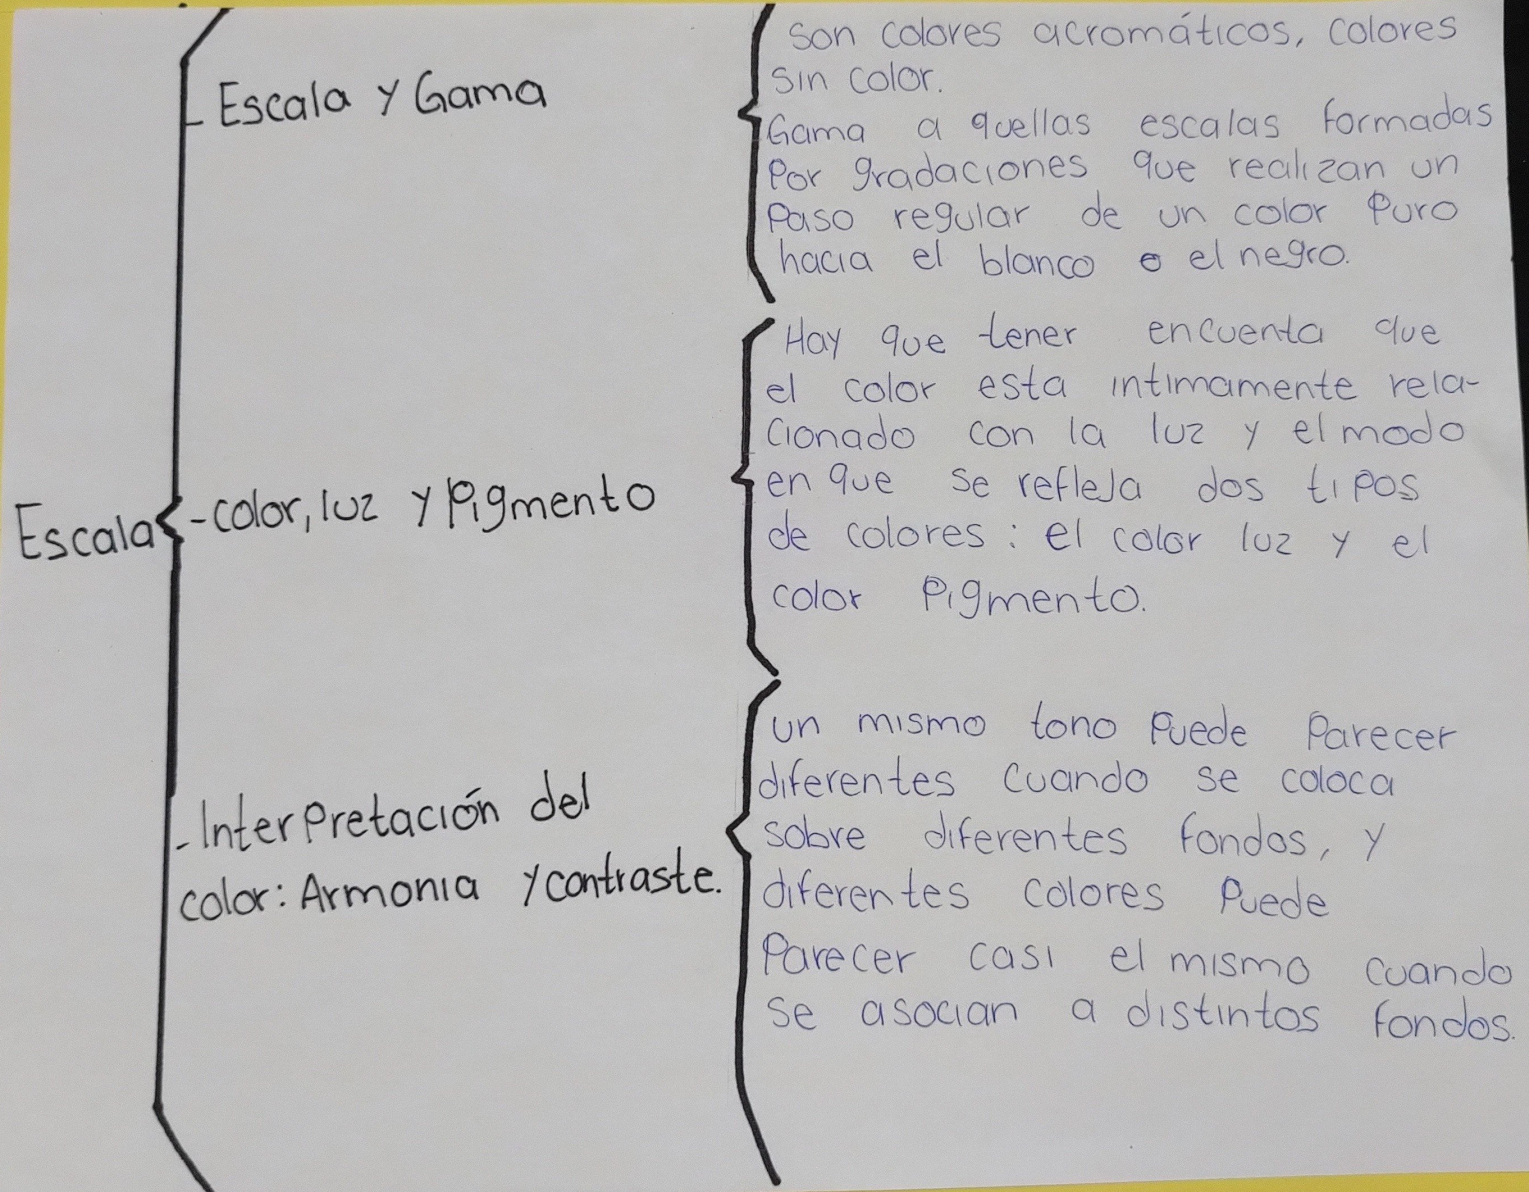 Escala
- Escala y Gama
son colores acromáticos, colores
sin color.
Gama a quellas escalas formadas
Por gradaciones que realizan un
Paso regular de un color Puro
hacia el blanco o el negro.
- color, luz y Pigmento
Hay que tener encuenta que
el color esta intimamente rela-
cionado con la luz y el modo
en que se refleja dos tipos
de colores: el color luz y el
color Pigmento.
- Interpretación del
color: Armonia y contraste.
un mismo tono Puede Parecer
diferentes cuando se coloca
sobre diferentes fondos, y
diferentes colores Puede
Parecer casi el mismo cuando
se asocian a distintos fondos.